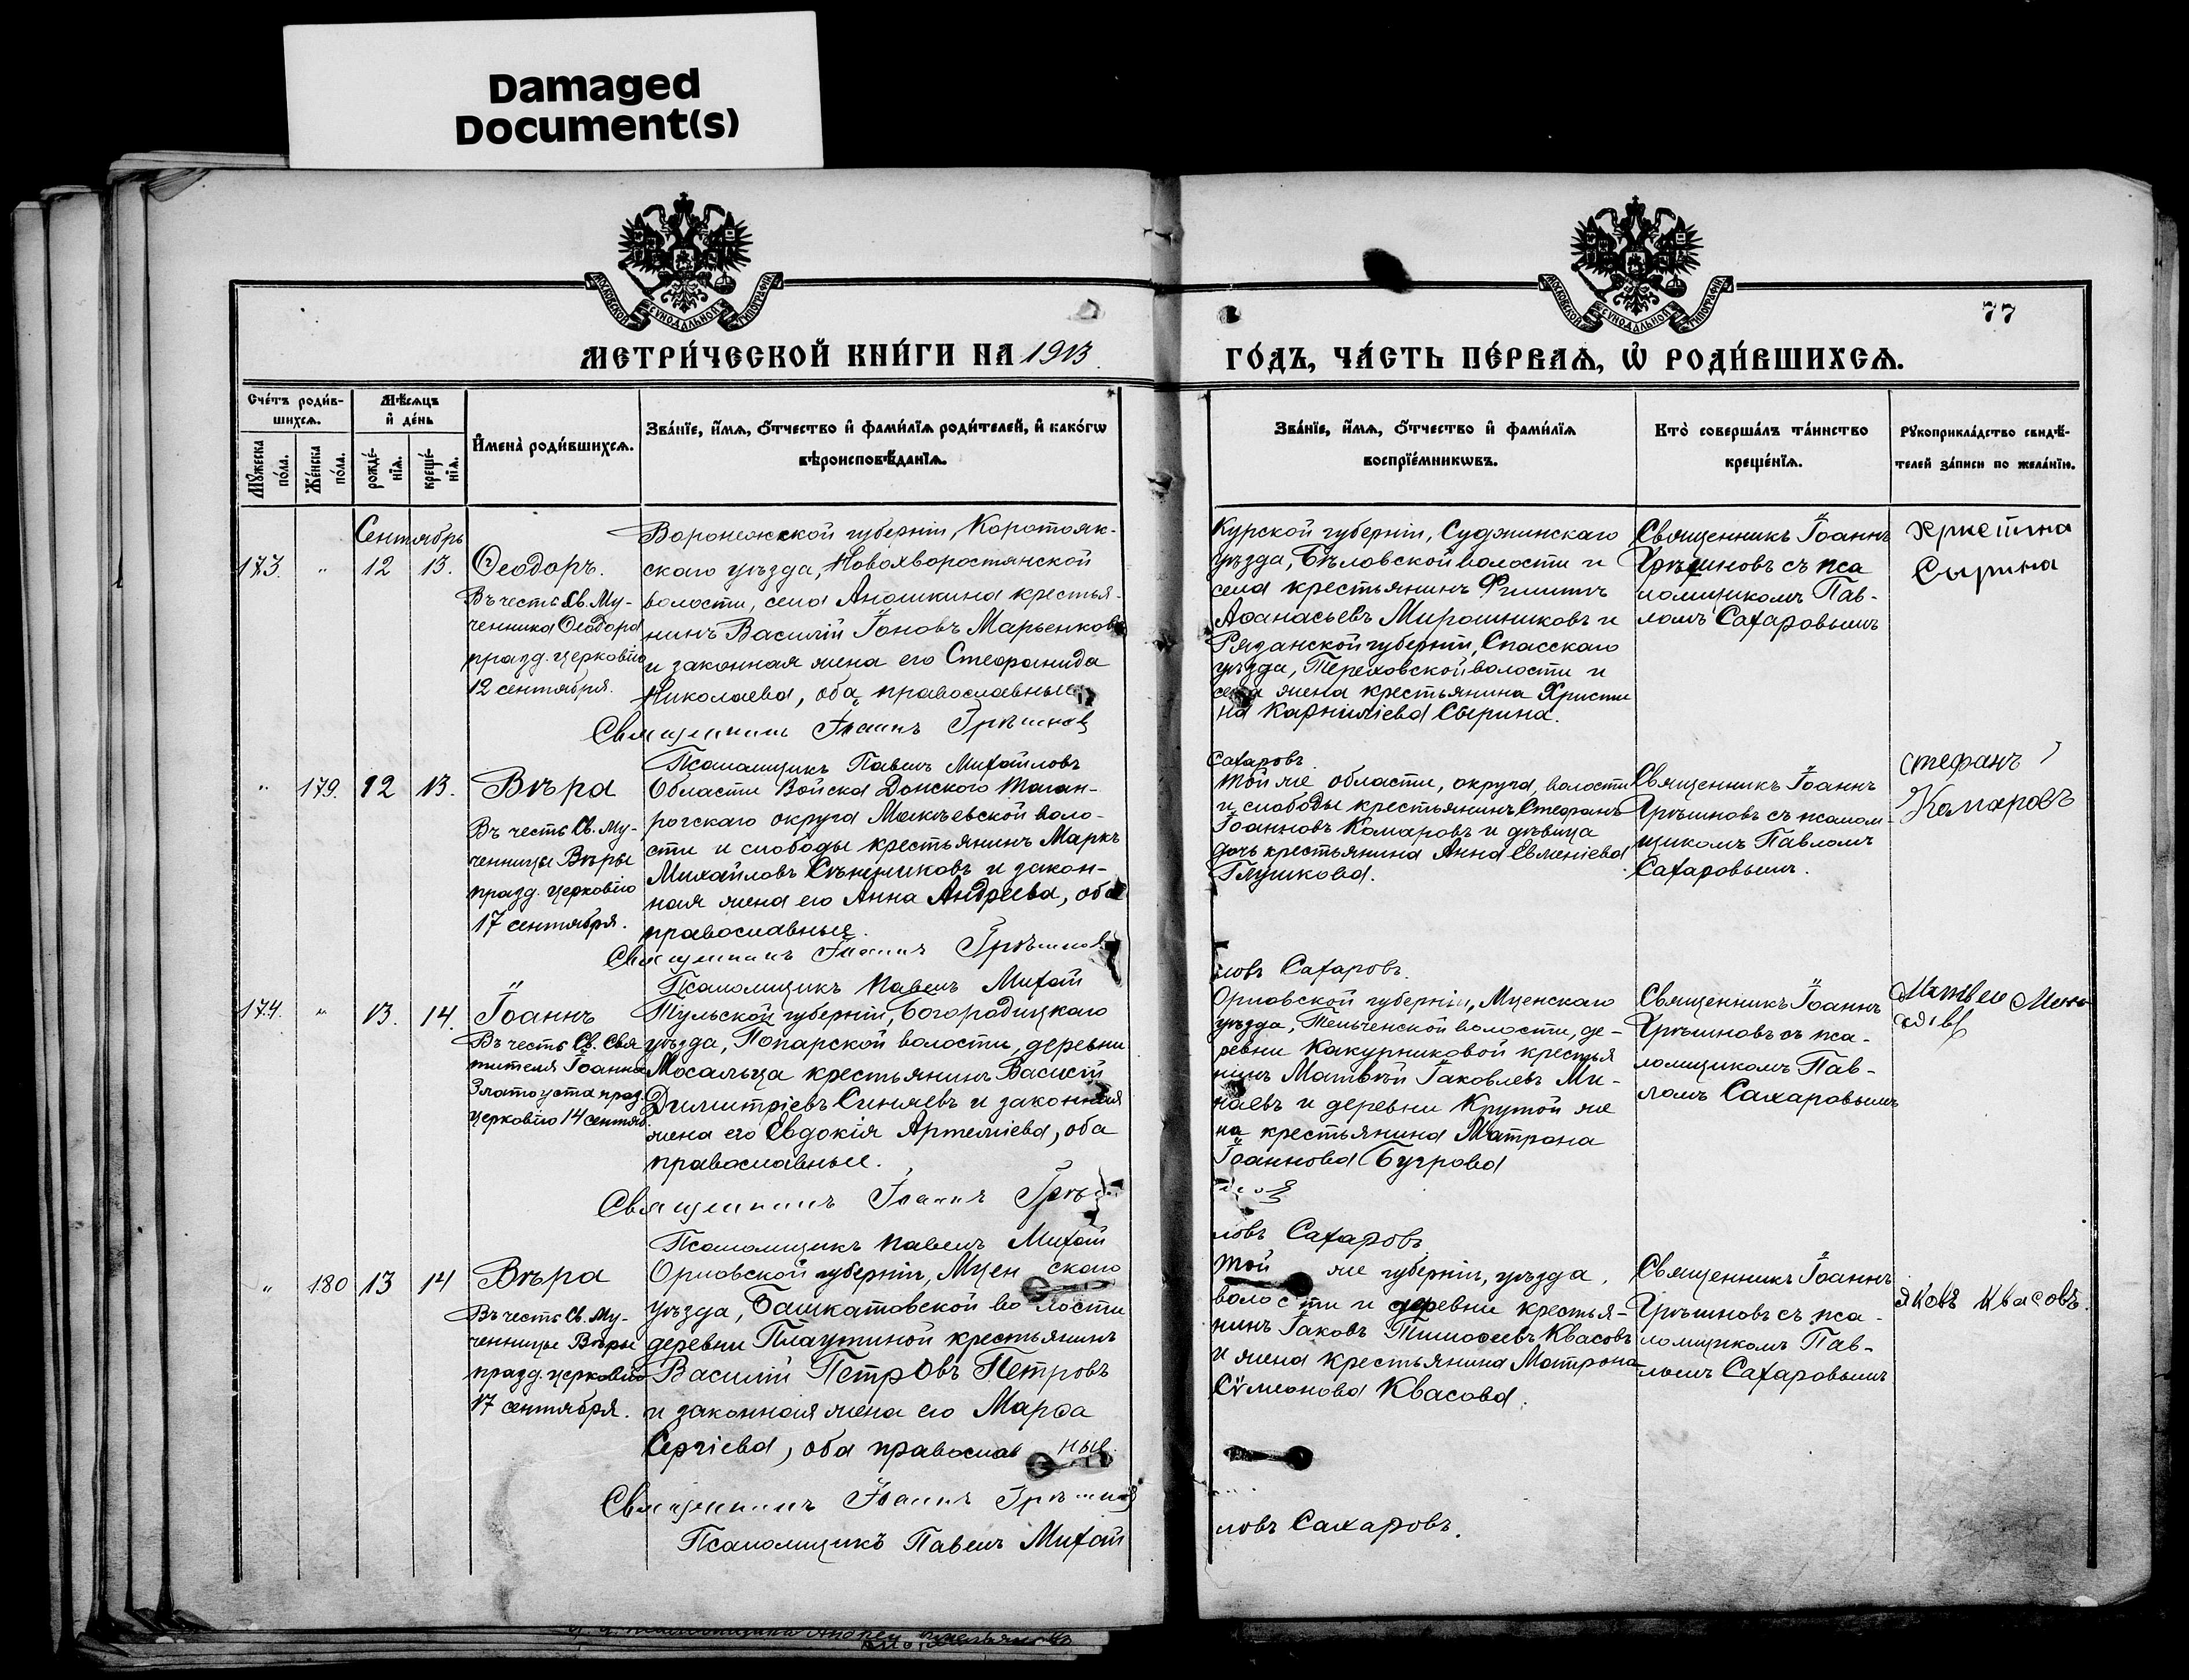 Damaged
Document(s)
МОСКОВСКОЙ СѴНОДАЛЬНОЙ ТИПОГРАФІИ
МОСКОВСКОЙ СѴНОДАЛЬНОЙ ТИПОГРАФІИ
77
МЕТРИ́ЧЕСКОЙ КНИ́ГИ НА 1913
ГО́ДЪ, ЧА́СТЬ ПЕ́РВАѦ, Ѡ҆ РОДИ́ВШИХСѦ.
Сче́тъ роди́в-
шихсѧ.
Мѣ́сѧцъ
и҆ де́нь
Мꙋ́жеска по́ла.
Же́нска по́ла.
рожде́-нїѧ.
креще́-нїѧ.
И҆мена̀ роди́вшихсѧ.
Зва́нїе, и҆́мѧ, ѻ҆́тчество и҆ фами́лїѧ роди́телей, и҆ како́гѡ
вѣроисповѣ́данїѧ.
Зва́нїе, и҆́мѧ, ѻ҆́тчество и҆ фами́лїѧ
воспрїе́мникѡвъ.
Кто̀ соверша́лъ та́инство
креще́нїѧ.
Рꙋкоприкла́дство свидѣ́-
телей за́писи по жела́нїю.
Сентябрь
173. " 12 13.
Ѳеодоръ.
Въ честь Св. Му-
ченика Ѳеодора
празд. церковію
12 сентября.
Воронежской губерніи, Коротояк-
скаго уѣзда, Новохворостянской
волости, села Аношкина крестья-
нинъ Василій Іоновъ Марьенковъ
и законная жена его Стефанида
Николаева, оба православные
Священникъ Іоаннъ Грѣшновъ
Псаломщикъ Павелъ Михайловъ
Курской губерніи, Суджинскаго
уѣзда, Бѣловской волости и
села крестьянинъ Филиппъ
Аѳанасьевъ Мирошниковъ и
Рязанской губерніи, Спасскаго
уѣзда, Тереховской волости и
села жена крестьянина Христи
на Карниліева Сырина.
Сахаровъ
Священникъ Іоаннъ
Грѣшновъ съ пса
ломщикомъ Пав-
ломъ Сахаровымъ
Христина
Сырина
" 179. 12 13.
Вѣра
Въ честь Св. Му-
ченицы Вѣры
празд. церковію
17 сентября.
Области Войска Донского Таган-
рогскаго округа Макѣевской воло-
сти и слободы крестьянинъ Маркъ
Михайловъ
и закон-
ная жена его Анна Андреева, оба
православные.
Священникъ Іоаннъ Грѣшновъ
Псаломщикъ Павелъ Михай
Той же области, округа, волости
и слободы крестьянинъ Стефанъ
Іоанновъ Комаровъ и дѣвица
дочь крестьянина Анна Евменіева
Глушкова.
ловъ Сахаровъ.
Священникъ Іоаннъ
Грѣшновъ съ псалом-
щикомъ Павломъ
Сахаровымъ.
Стефанъ
Комаровъ
174. " 13. 14.
Іоаннъ
Въ честь Св. Свя
тителя Іоанна
Златоуста праз.
церковію 14 сентяб.
Тульской губерніи, Богородицкаго
уѣзда, Папарской волости, деревни
Мосальца крестьянинъ Василій
Димитріевъ Синяевъ и законная
жена его Евдокія Артеміева, оба
православные.
Священникъ Іоаннъ Грѣш
Псаломщикъ Павелъ Михай
Орловской губерніи, Мценскаго
уѣзда, Тельченской волости, де-
ревни Какурниковой крестья
нинъ Матвѣй Іаковлевъ Ми-
наевъ и деревни Крутой же
на крестьянина Матрона
Іоаннова Бугрова
новъ
ловъ Сахаровъ
Священникъ Іоаннъ
Грѣшновъ съ пса-
ломщикомъ Пав-
ломъ Сахаровымъ
Матвей
" 180 13 14
Вѣра
Въ честь Св. Му-
ченицы Вѣры
празд. церковію
17 сентября.
Орловской губерніи, Мцен скаго
уѣзда, Башкатовской во лости
деревни Плаутиной крестьянинъ
Василій Петровъ Петровъ
и законная жена его Марѳа
Сергіева, оба православ ные.
Священникъ Іоаннъ Грѣшновъ
Псаломщикъ Павелъ Михай
Той же губерніи, уѣзда,
волости и деревни крестья-
нинъ Іаковъ Тимоѳеевъ Квасовъ
и жена крестьянина Матрона
Сѵмеонова Квасова.
ловъ Сахаровъ.
Священникъ Іоаннъ
Грѣшновъ съ пса-
ломщикомъ Пав-
ломъ Сахаровымъ
Яковъ Квасовъ.